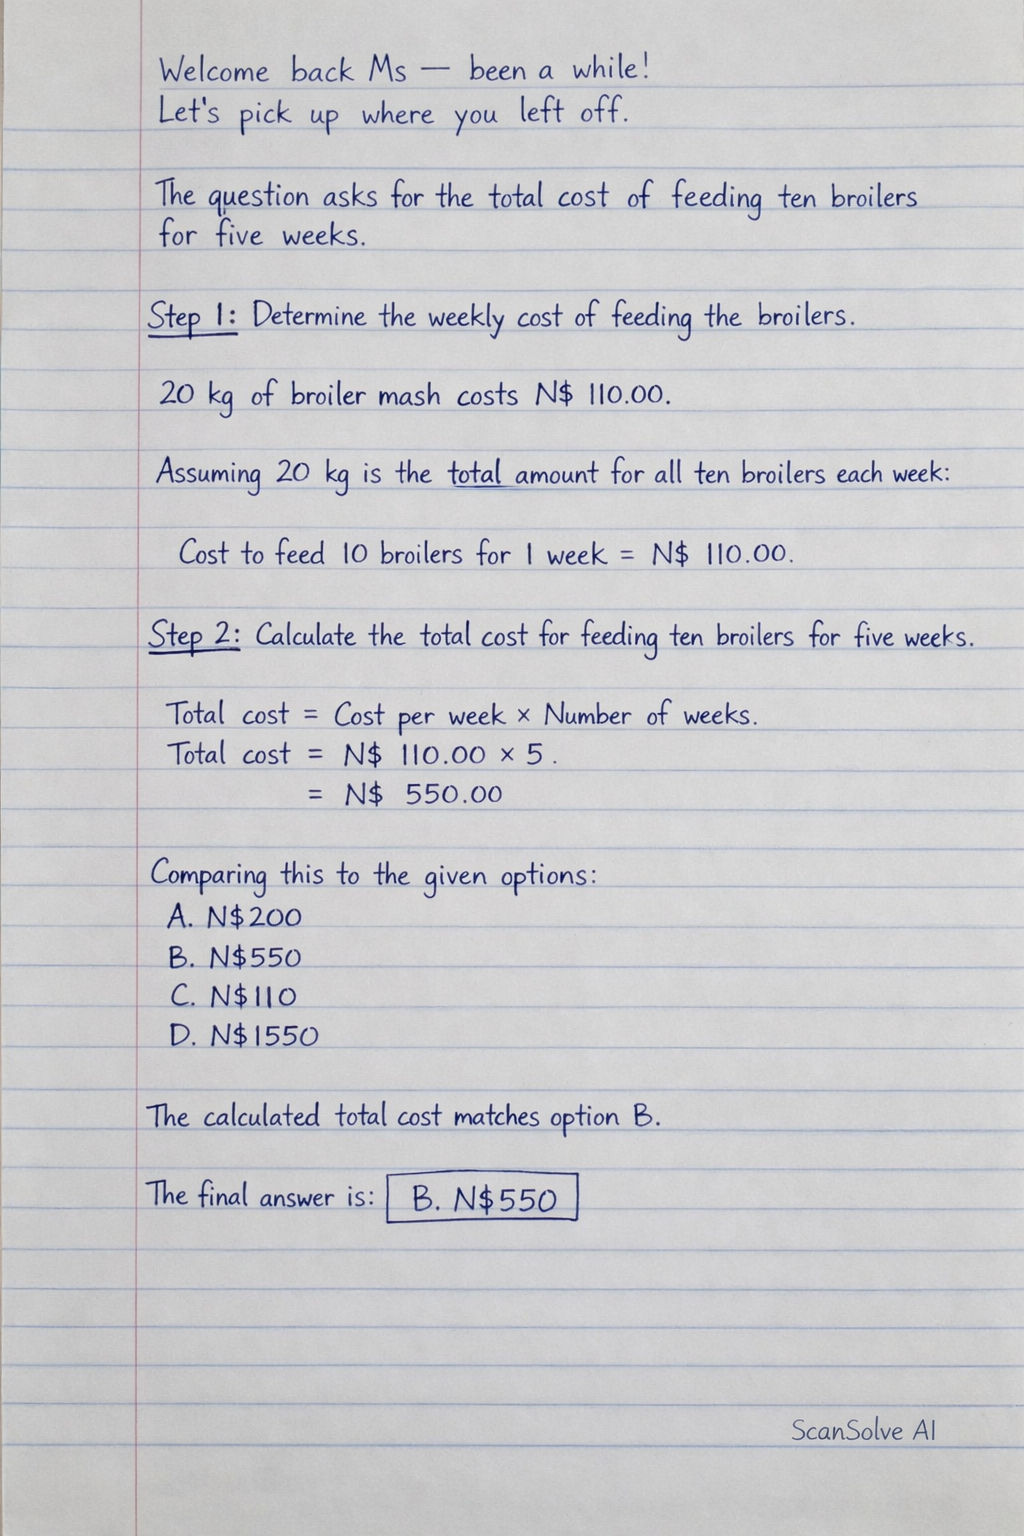 Welcome back Ms — been a while!
Let's pick up where you left off.
The question asks for the total cost of feeding ten broilers
for five weeks.
Step 1: Determine the weekly cost of feeding the broilers.
20 kg of broiler mash costs N$ 110.00.
Assuming 20 kg is the total amount for all ten broilers each week:
Cost to feed 10 broilers for 1 week = N$ 110.00.
Step 2: Calculate the total cost for feeding ten broilers for five weeks.
Total cost = Cost per week × Number of weeks.
Total cost = N$ 110.00 × 5.
= N$ 550.00
Comparing this to the given options:
A. N$200
B. N$550
C. N$110
D. N$1550
The calculated total cost matches option B.
The final answer is: B. N$550
ScanSolve AI